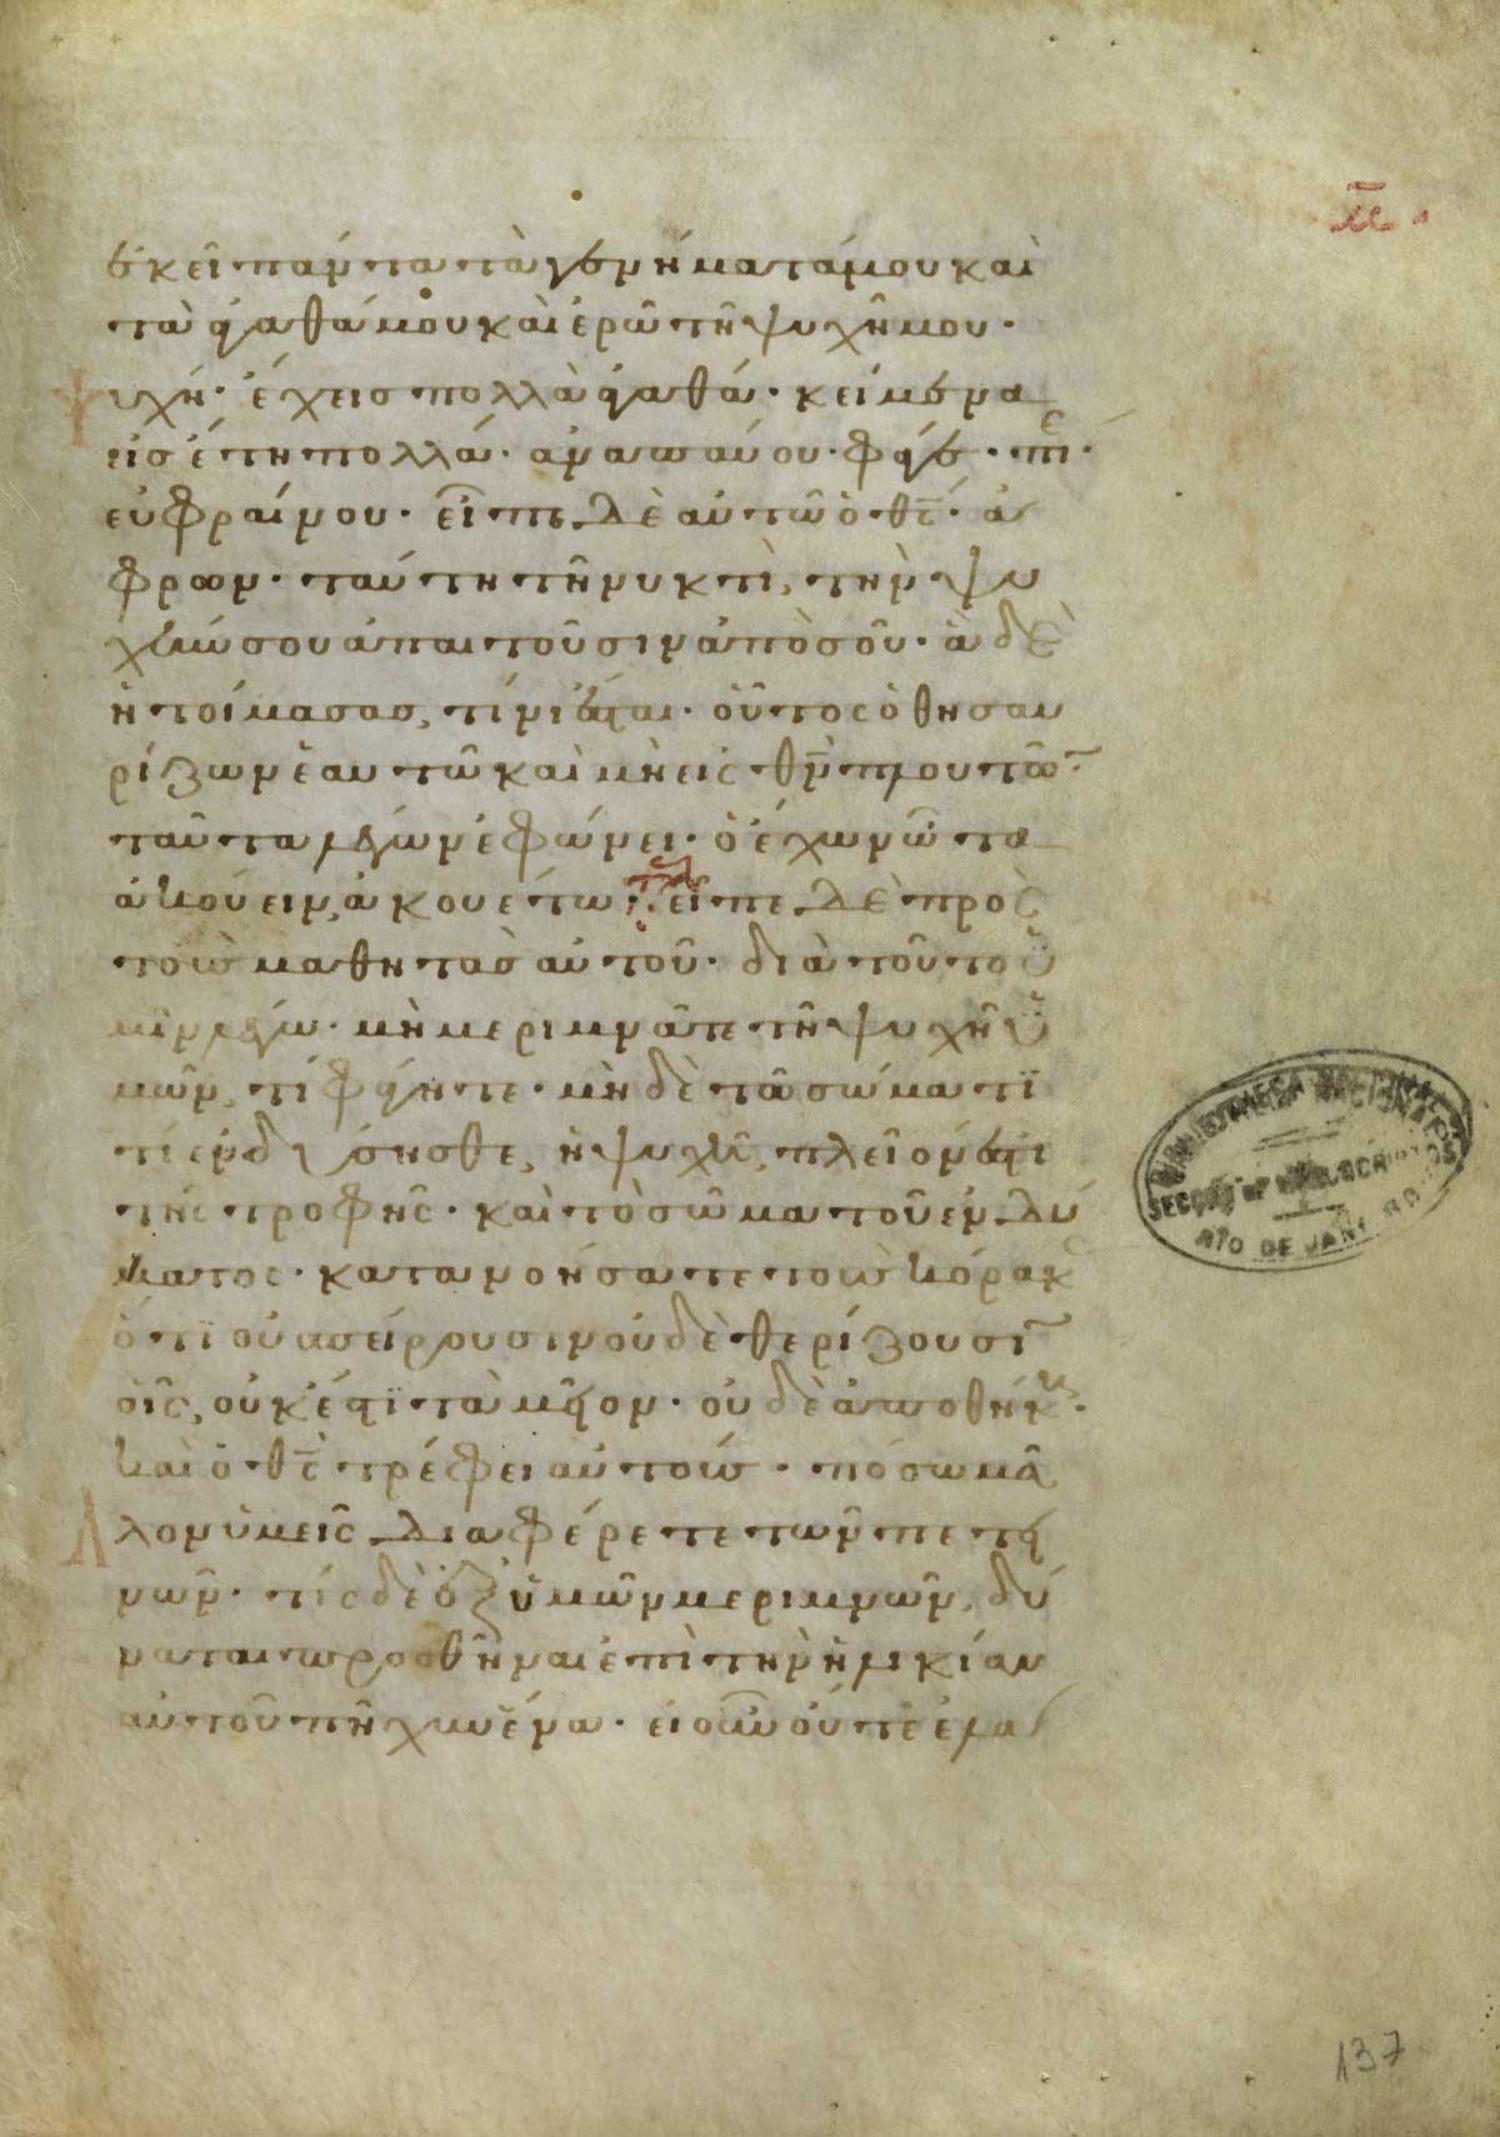 ἐκεῖ πάντα τὰ γενήματά μου καὶ
τὰ ἀγαθά μου καὶ ἐρῶ τῆ ψυχῆ μου·
ψυχή· ἔχεις πολλὰ ἀγαθά· κείμενα
εἰς ἔτη πολλά· ἀναπαύου· φάγε· πίε·
εὐφραίνου· εἶπε δὲ αὐτῶ ὁ θς· ἄ
φρον· ταύτη τῆ νυκτὶ, τὴν ψυ
χήν σου ἀπαιτοῦσιν ἀπὸ σοῦ· ἃ δὲ
ἡτοίμασας, τίνι ἔσται· οὕτος ὁ θησαυ
ρίζων ἑαυτῶ καὶ μὴ εἰς θν πλουτῶν·
ταῦτα λέγων ἐφώνει· ὁ ἔχων ὦτα
ἀκούειν, ἀκουέτω· τελ εἶπε δὲ πρὸς
τοὺς μαθητὰς αὐτοῦ· διὰ τοῦτο ὑ
μῖν λέγω· μὴ μεριμνᾶτε τῆ ψυχῆ ὑ
μῶν, τί φάγητε· μηδὲ τῶ σώματϊ
τί ἐνδύσησθε, ἡ ψυχὴ, πλεῖόν ἐστι
τῆς τροφῆς· καὶ τὸ σῶμα τοῦ ἐνδύ
ματος· κατανοήσατε τοὺς κόρακας
ὅτϊ οὐ σπείρουσιν οὐδὲ θερίζουσιν
οἷς, οὐκ ἔστϊ ταμεῖον· οὐδὲ ἀποθήκη·
καὶ ὁ θς τρέφει αὐτούς· πόσω μᾶλ
λον ὑμεῖς διαφέρετε τῶν πετει
νῶν· τίς δὲ ἐξ ὑμῶν μεριμνῶν, δύ
ναται προσθῆναι ἐπὶ τὴν ἡλικίαν
αὐτοῦ πῆχυν ἕνα· εἰ οὖν οὔτε ἐλα
BIBLIOTHECA NACIONAL
SECÇÃO DE MANUSCRIPTOS
RIO DE JANEIRO
137